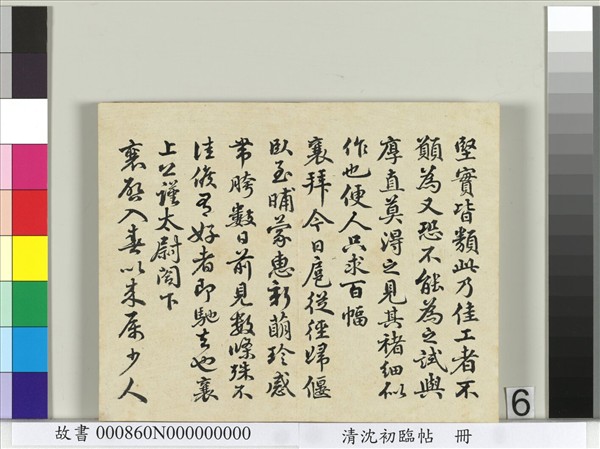 堅實皆類此乃佳工者不
願為又恐不能為之試與
厚直莫得之見其楮細似
作也便人只求百幅
襄拜今日扈從徑歸偃
臥至晡蒙惠新萌珍感
帶胯數日前見數條殊不
佳候有好者即馳去也襄
上公謹太尉閣下
襄啟入春以來屬少人
6
故書 000860N000000000 清沈初臨帖 冊